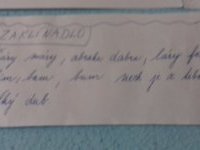 ZAKLÍNADLO
Čáry máry, abraka dabra, láry f
bum, bum nech je z teb
ký dub